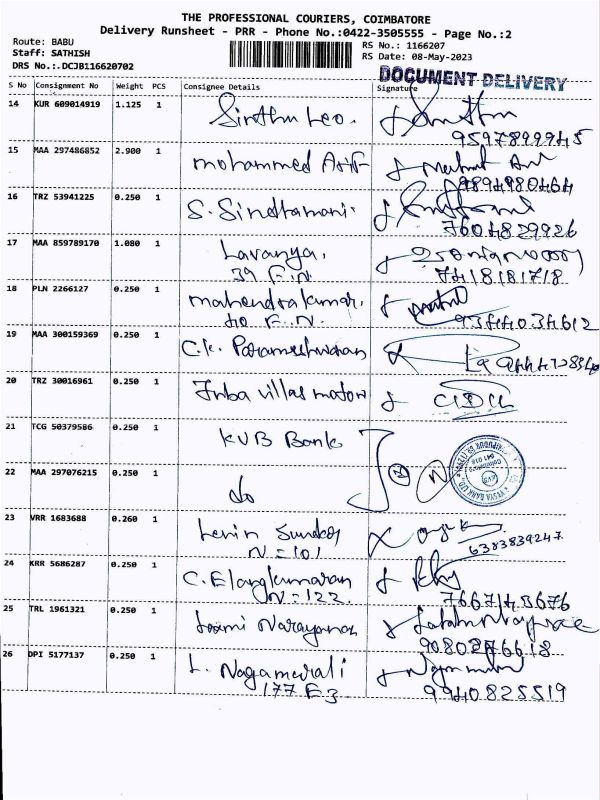 THE PROFESSIONAL COURIERS, COIMBATORE
Delivery Runsheet - PRR - Phone No.:0422-3505555 - Page No.:2
Route: BABU
RS No.: 1166207
Staff: SATHISH
RS Date: 08-May-2023
DRS No.:.DCJB116620702
DOCUMENT DELIVERY
S No Consignment No Weight PCS Consignee Details Signature
14 KUR 609014919 1.125 1 Sinthu Leo.
9597899945
15 MAA 297486852 2.900 1 mohammed Arif
9894980464
16 TRZ 53941225 0.250 1 S. Sindhamani.
7604829926
17 MAA 859789170 1.080 1 Lavanya,
39 F.N. 7418181718
18 PLN 2266127 0.250 1 mahendrakumar.
40 F.N. 9344034612
19 MAA 300159369 0.250 1 C.K. Parameshwaran
20 TRZ 30016961 0.250 1 Inba villas motors
21 TCG 50379586 0.250 1 KVB Bank
22 MAA 297076215 0.250 1 do
23 VRR 1683688 0.260 1
N=101 6383839247
24 KRR 5686287 0.250 1 C. Elangkumaran
N=122 7667143676
25 TRL 1961321 0.250 1 Laxmi Narayanan
9080276618
26 DPI 5177137 0.250 1
177 F3 9940825519